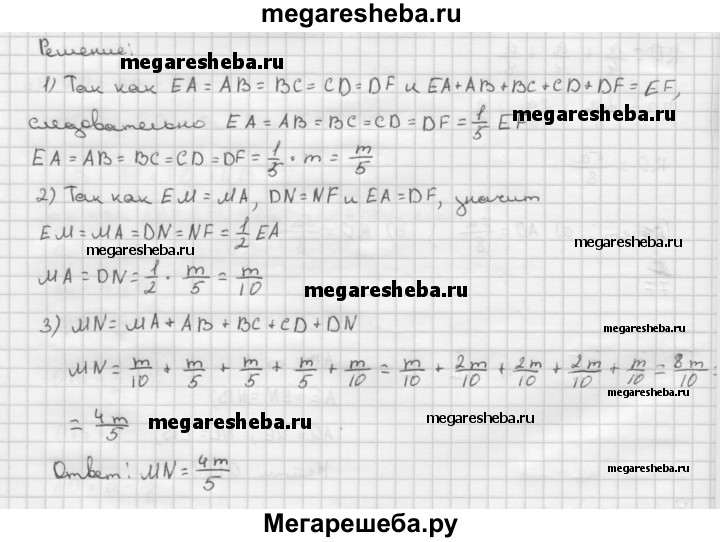 megaresheba.ru
Решение:
megaresheba.ru
1) Так как EA = AB = BC = CD = DF и EA + AB + BC + CD + DF = EF,
megaresheba.ru
следовательно EA = AB = BC = CD = DF = 1/5 EF
EA = AB = BC = CD = DF = 1/5 · m = m/5
2) Так как EM = MA, DN = NF и EA = DF, значит
EM = MA = DN = NF = 1/2 EA
megaresheba.ru
megaresheba.ru
MA = DN = 1/2 · m/5 = m/10
megaresheba.ru
3) MN = MA + AB + BC + CD + DN
megaresheba.ru
MN = m/10 + m/5 + m/5 + m/5 + m/10 = m/10 + 2m/10 + 2m/10 + 2m/10 + m/10 = 8m/10 =
megaresheba.ru
= 4m/5
megaresheba.ru
megaresheba.ru
Ответ: MN = 4m/5
megaresheba.ru
Мегарешеба.ру